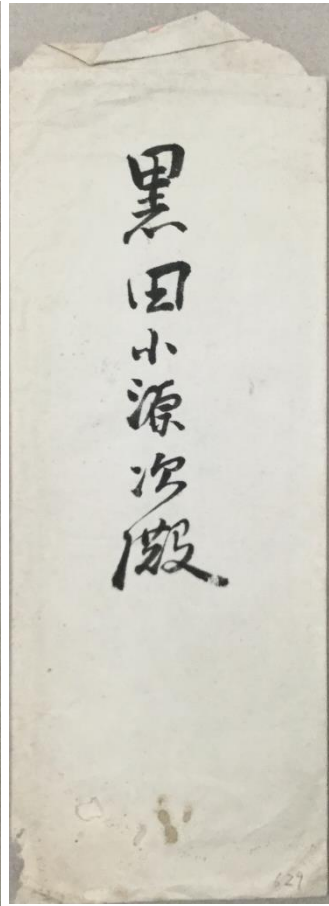 黒田小源次殿
629